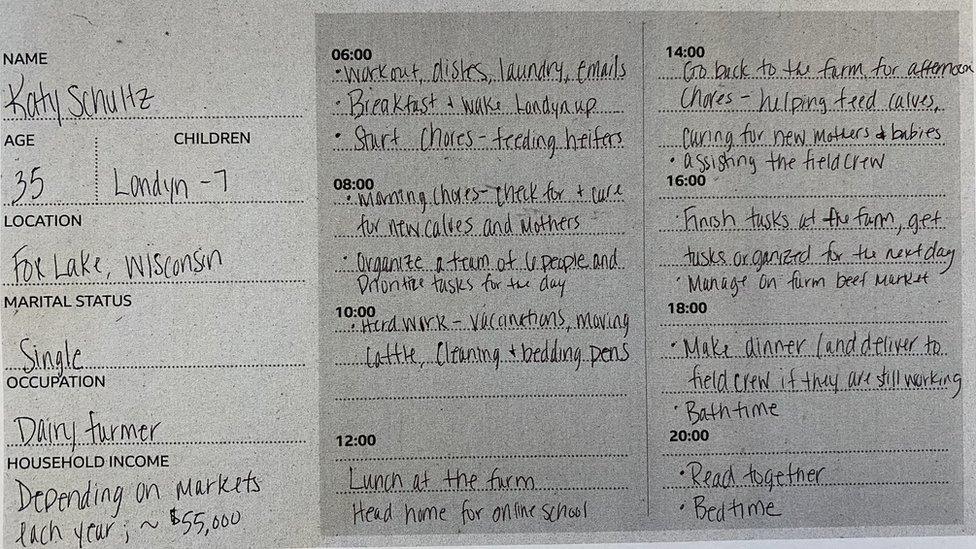 NAME
Katy Schultz
AGE
CHILDREN
35
Londyn - 7
LOCATION
Fox Lake, Wisconsin
MARITAL STATUS
Single
OCCUPATION
Dairy farmer
HOUSEHOLD INCOME
Depending on markets
each year; ~ $55,000
06:00
• Workout, dishes, laundry, emails
• Breakfast + wake Londyn up
• Start chores - feeding heifers
08:00
• Morning chores - check for + care
for new calves and mothers
• Organize a team of 6 people and
Prioritize tasks for the day
10:00
• Herd work - vaccinations, moving
cattle, cleaning + bedding pens
12:00
Lunch at the farm
Head home for online school
14:00
Go back to the farm for afternoon
chores - helping feed calves,
caring for new mothers & babies
• assisting the field crew
16:00
• Finish tasks at the farm, get
tasks organized for the next day
• Manage on farm beef market
18:00
• Make dinner (and deliver to
field crew if they are still working
• Bath time
20:00
• Read together
• Bedtime